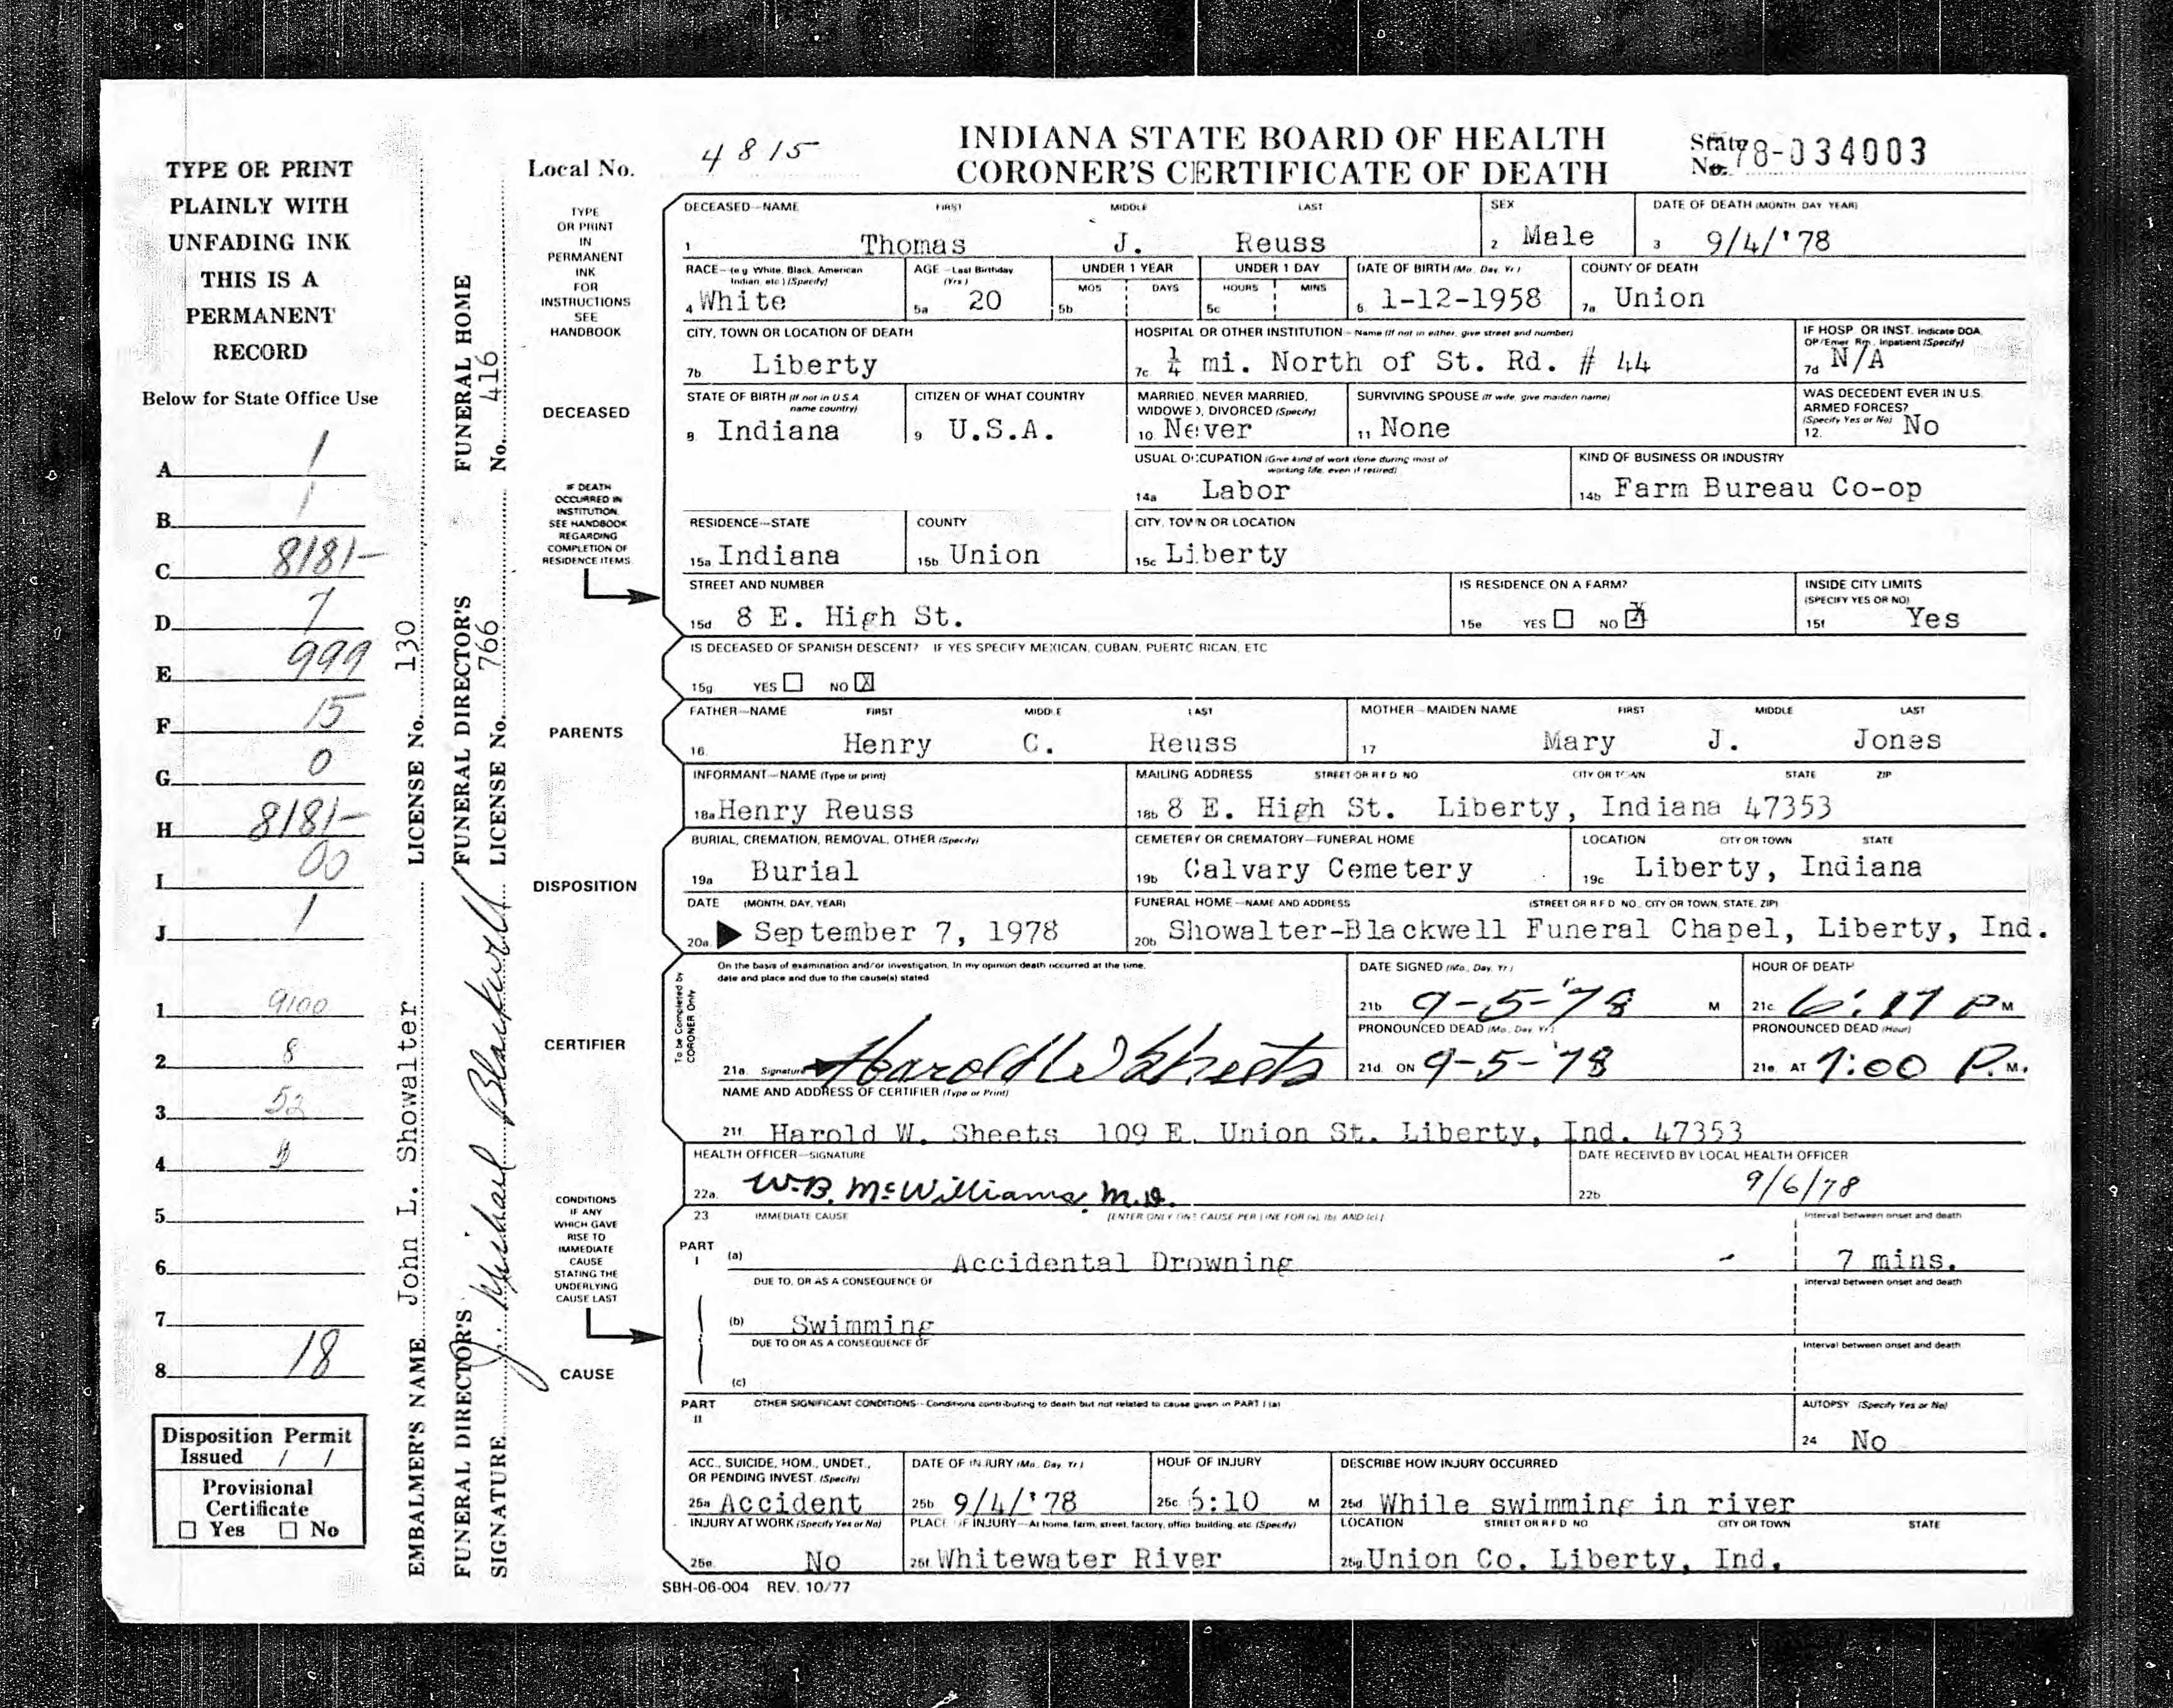 INDIANA STATE BOARD OF HEALTH
CORONER'S CERTIFICATE OF DEATH
Local No. 4815
State No. 78-034003
TYPE OR PRINT
PLAINLY WITH
UNFADING INK
THIS IS A
PERMANENT
RECORD
Below for State Office Use
A 1
B 1
C 8181-
D 7
E 999
F 15
G 0
H 8181-
I 00
J 1
1 9100
2 8
3 52
4
5
6
7
8 18
Disposition Permit
Issued / /
Provisional
Certificate
☐ Yes ☐ No
EMBALMER'S NAME John L. Showalter LICENSE No. 130
FUNERAL DIRECTOR'S SIGNATURE J. Michael Blackwell
FUNERAL DIRECTOR'S LICENSE No. 766
FUNERAL HOME No. 416
TYPE
OR PRINT
IN
PERMANENT
INK
FOR
INSTRUCTIONS
SEE
HANDBOOK
DECEASED
IF DEATH
OCCURRED IN
INSTITUTION
SEE HANDBOOK
REGARDING
COMPLETION OF
RESIDENCE ITEMS
PARENTS
DISPOSITION
CERTIFIER
CONDITIONS
IF ANY
WHICH GAVE
RISE TO
IMMEDIATE
CAUSE
STATING THE
UNDERLYING
CAUSE LAST
CAUSE
DECEASED—NAME FIRST MIDDLE LAST SEX DATE OF DEATH (MONTH DAY YEAR)
1 Thomas J. Reuss 2 Male 3 9/4/'78
RACE—(e g White, Black, American Indian, etc ) (Specify) AGE—Last Birthday (Yrs ) UNDER 1 YEAR UNDER 1 DAY DATE OF BIRTH (Mo. Day. Yr.) COUNTY OF DEATH
MOS DAYS HOURS MINS
4 White 5a 20 5b 5c 6. 1-12-1958 7a Union
CITY, TOWN OR LOCATION OF DEATH HOSPITAL OR OTHER INSTITUTION—Name (If not in either, give street and number) IF HOSP OR INST. Indicate DOA, OP/Emer Rm., Inpatient (Specify)
7b Liberty 7c ¼ mi. North of St. Rd. # 44 7d N/A
STATE OF BIRTH (If not in U S A name country) CITIZEN OF WHAT COUNTRY MARRIED, NEVER MARRIED, WIDOWED, DIVORCED (Specify) SURVIVING SPOUSE (If wife, give maiden name) WAS DECEDENT EVER IN U.S. ARMED FORCES? (Specify Yes or No)
8. Indiana 9. U.S.A. 10. Never 11 None 12. No
USUAL OCCUPATION (Give kind of work done during most of working life, even if retired) KIND OF BUSINESS OR INDUSTRY
14a Labor 14b Farm Bureau Co-op
RESIDENCE—STATE COUNTY CITY, TOWN OR LOCATION
15a Indiana 15b Union 15c Liberty
STREET AND NUMBER IS RESIDENCE ON A FARM? INSIDE CITY LIMITS (SPECIFY YES OR NO)
15d 8 E. High St. 15e YES ☐ NO ☒ 15f Yes
IS DECEASED OF SPANISH DESCENT? IF YES SPECIFY MEXICAN, CUBAN, PUERTO RICAN, ETC
15g YES ☐ NO ☒
FATHER—NAME FIRST MIDDLE LAST MOTHER—MAIDEN NAME FIRST MIDDLE LAST
16. Henry C. Reuss 17 Mary J. Jones
INFORMANT—NAME (Type or print) MAILING ADDRESS STREET OR R F D NO CITY OR TOWN STATE ZIP
18a Henry Reuss 18b 8 E. High St. Liberty, Indiana 47353
BURIAL, CREMATION, REMOVAL, OTHER (Specify) CEMETERY OR CREMATORY—FUNERAL HOME LOCATION CITY OR TOWN STATE
19a Burial 19b Calvary Cemetery 19c Liberty, Indiana
DATE (MONTH, DAY, YEAR) FUNERAL HOME—NAME AND ADDRESS (STREET OR R F D NO., CITY OR TOWN, STATE, ZIP)
20a. September 7, 1978 20b Showalter-Blackwell Funeral Chapel, Liberty, Ind.
To be Completed by CORONER Only
On the basis of examination and/or investigation, in my opinion death occurred at the time, date and place and due to the cause(s) stated
DATE SIGNED (Mo., Day, Yr.) HOUR OF DEATH
21b 9-5-'78 M 21c. 6:17 P M
PRONOUNCED DEAD (Mo., Day, Yr.) PRONOUNCED DEAD (Hour)
21a. Signature Harold W Sheets 21d. ON 9-5-'78 21e. AT 7:00 P. M.
NAME AND ADDRESS OF CERTIFIER (Type or Print)
21f. Harold W. Sheets 109 E. Union St. Liberty, Ind. 47353
HEALTH OFFICER—SIGNATURE DATE RECEIVED BY LOCAL HEALTH OFFICER
22a. W.B. McWilliams, M.D. 22b 9/6/78
23 IMMEDIATE CAUSE [ENTER ONLY ONE CAUSE PER LINE FOR (a), (b), AND (c)] Interval between onset and death
PART I (a) Accidental Drowning - 7 mins.
DUE TO, OR AS A CONSEQUENCE OF Interval between onset and death
(b) Swimming
DUE TO OR AS A CONSEQUENCE OF Interval between onset and death
(c)
PART II OTHER SIGNIFICANT CONDITIONS—Conditions contributing to death but not related to cause given in PART I (a) AUTOPSY (Specify Yes or No)
24 No
ACC., SUICIDE, HOM., UNDET., OR PENDING INVEST. (Specify) DATE OF INJURY (Mo., Day, Yr.) HOUR OF INJURY DESCRIBE HOW INJURY OCCURRED
25a Accident 25b 9/4/'78 25c. 6:10 M 25d. While swimming in river
INJURY AT WORK (Specify Yes or No) PLACE OF INJURY—At home, farm, street, factory, office building, etc. (Specify) LOCATION STREET OR R F D NO. CITY OR TOWN STATE
25e. No 25f. Whitewater River 25g. Union Co. Liberty, Ind.
SBH-06-004 REV. 10/77